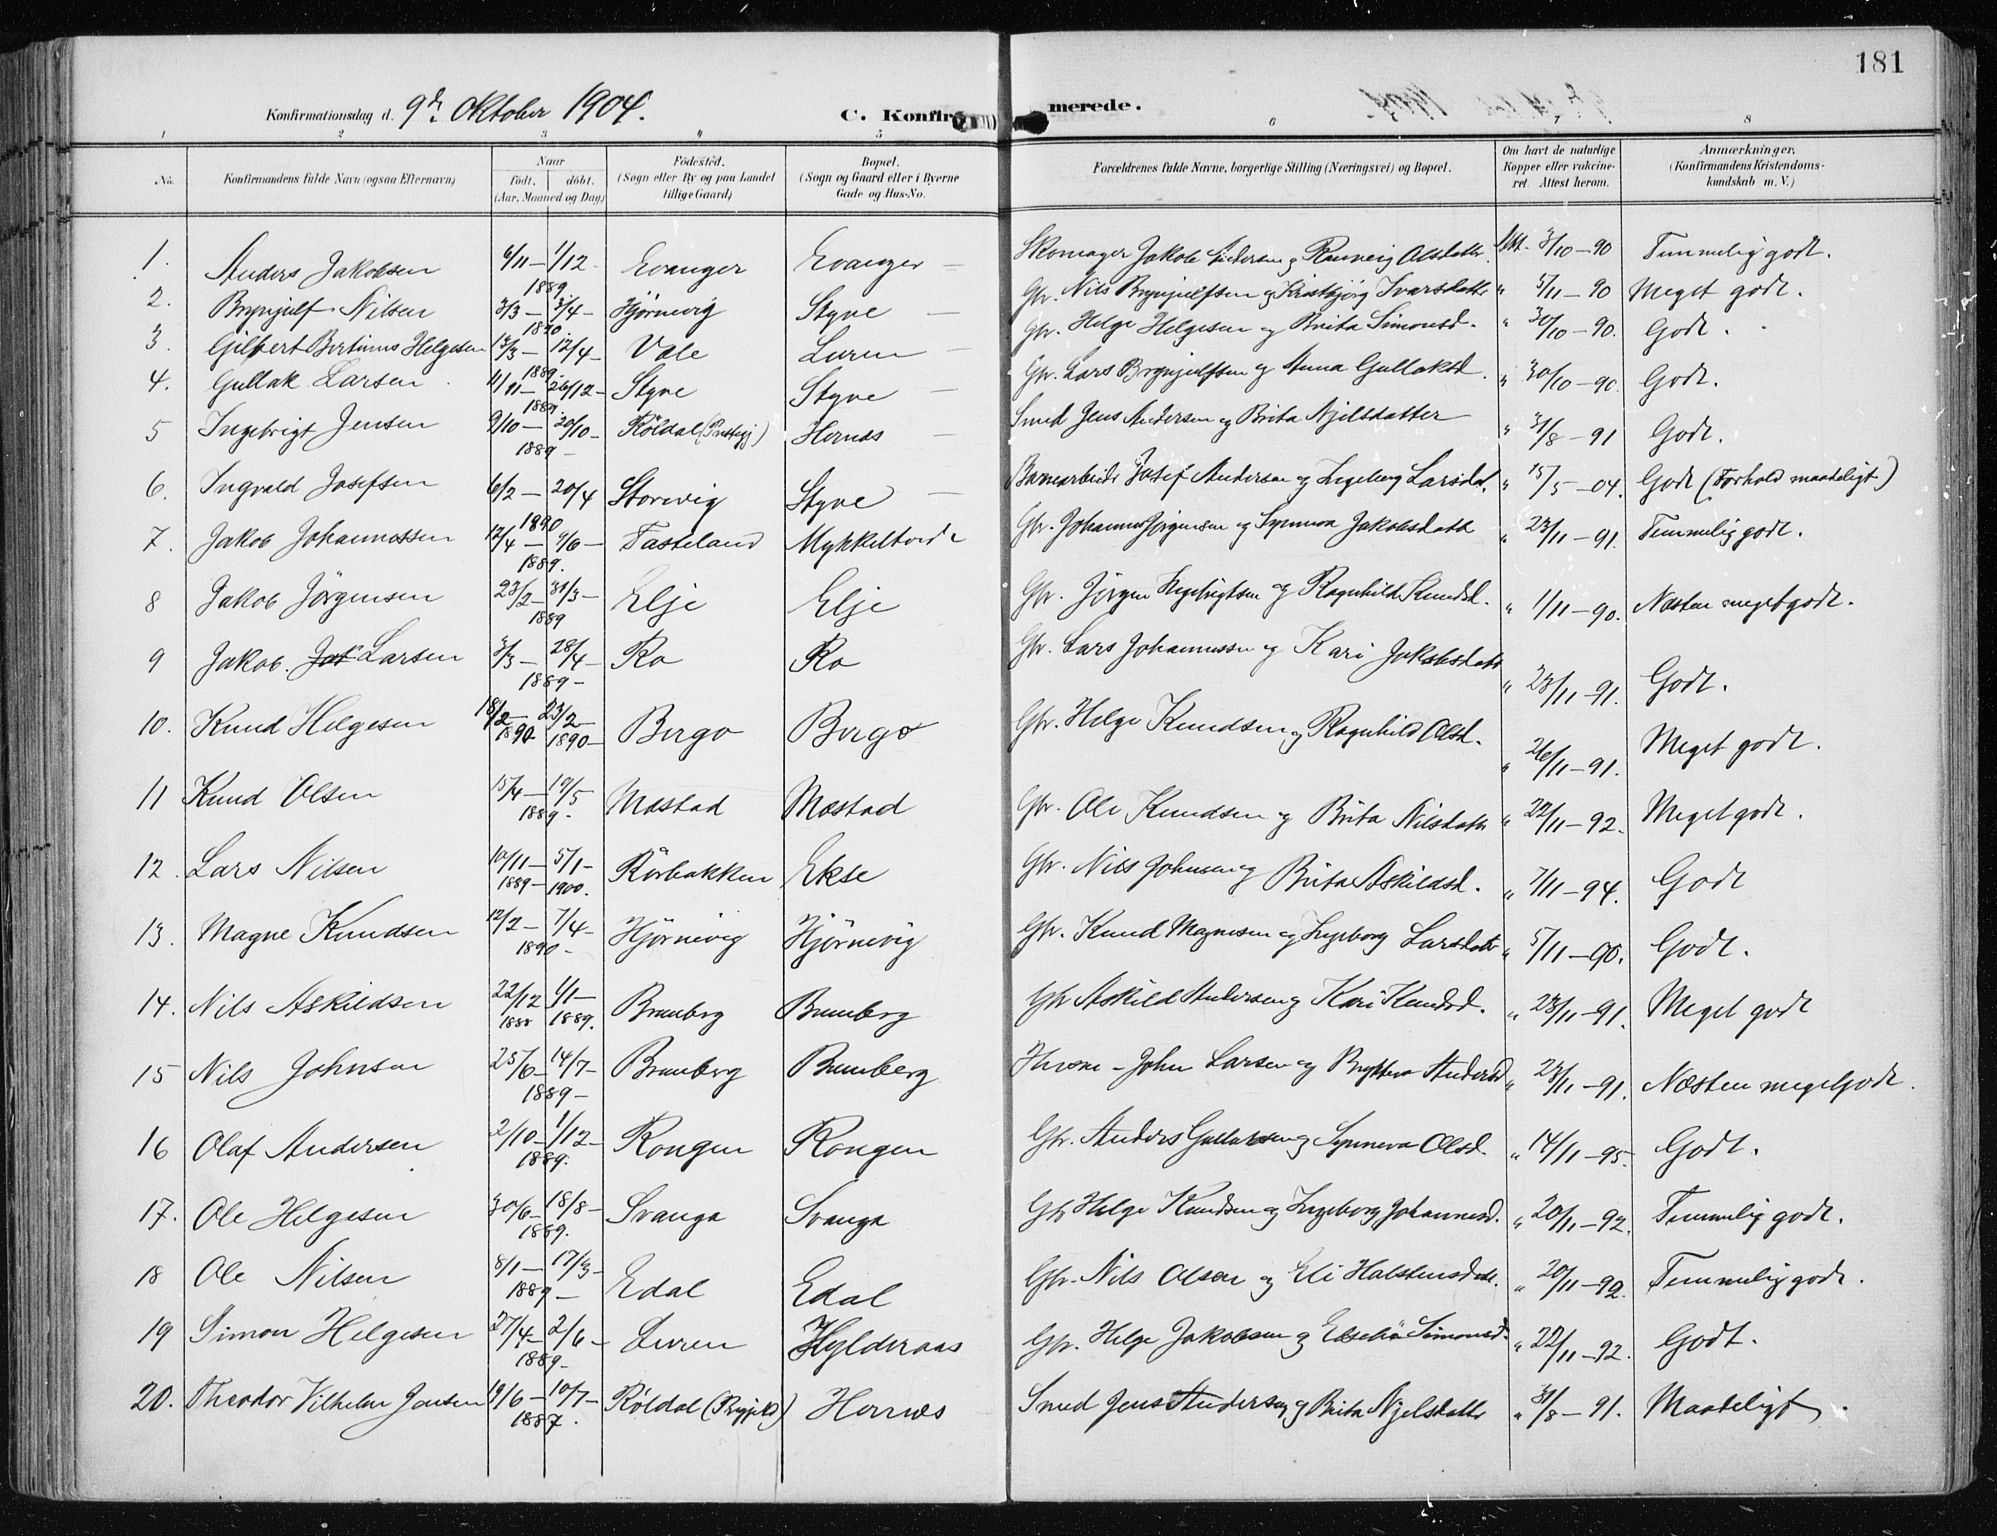 181
Konfirmationsdag d. 9de Oktober 1904.
C. Konfirmerede.
1 2 3 4 5 6 7 8
No. Konfirmandens fulde Navn (ogsaa Efternavn) Naar født. døbt. (Aar, Maaned og Dag) Fødested. (Sogn eller By og paa Landet tillige Gaard) Bopæl. (Sogn og Gaard eller i Byerne Gade og Hus-No. Forældrenes fulde Navne, borgerlige Stilling (Næringsvei) og Bopæl. Om havt de naturlige Kopper eller vakcineret. Attest herom. Anmærkninger. (Konfirmandens Kristendomskundskab m. V.)
1. Anders Jakobsen 6/11 – 1/12 1889 Evanger Evanger – Skomager Jakob Andersen og Ranveig Olsdatter. Att. 3/10 – 90 Temmelig godt.
2. Brynjulf Nilsen 3/3 – 3/4 – 1890 Hjørnevig Styve – Gbr. Nils Brynjulfsen og Kristbjørg Ivarsdatter " 5/11 – 90 Meget godt.
3. Gilbert Bertinus Helgesen 13/3 – 12/4 – 1889 Væle Luren – Gbr. Helge Helgesen og Brita Simonsd. " 30/10 – 90. Godt.
4. Gullak Larsen 11/11 – 26/12 – 1889 Styve Styve – Gbr. Lars Brynjulfsen og Anna Gullaksd. " 30/10 – 90. Godt.
5 Ingebrigt Jensen 9/10 – 20/10 – 1889 – Røldal (Prestegj) Hernes – Smed Jens Andersen og Brita Njelsdatter " 31/8 – 91 Godt.
6. Ingvald Josefsen 6/2 – 20/4 1890 Storevig Styve – Banearbeider Josef Andersen og Ingeborg Larsdat. " 15/5 – 04. Godt (Forhold maadeligt)
7. Jakob Johannessen 12/4 – 9/6 – 1889. Fasteland Mykkeltvedt Gbr. Johannes Jørgensen og Synneva Jakobsdatt " 23/11 – 91. Temmelig godt.
8 Jakob Jørgensen 23/2 – 31/3 – 1889 Elje Elje Gbr. Jørgen Ingebrigtsen og Ragnhild Knudsd. " 1/11 – 90. Næsten meget godt.
9 Jakob Larsen 3/3 – 28/4 – 1889 – Ro Ro Gbr. Lars Johannessen og Kari Jakobsdatr " 23/11 – 91. Godt.
10. Knud Helgesen 18/2 – 1890 23/2 – 1890 – Bergo Bergo Gbr. Helge Knudsen og Ragnhild Olsd. " 26/11 – 91. Meget godt.
11 Knud Olsen 15/4 – 19/5 1889 – Mæstad Mæstad Gbr. Ole Knudsen og Brita Nilsdatr " 22/11 – 92. Meget godt.
12. Lars Nilsen 10/11 – 1889 – 5/1 – 1900. Rørbakken Ekse Gbr. Nils Johnsen og Brita Askildsd. " 7/11 – 94. Godt
13. Magne Knudsen 12/2 – 7/4 – 1890 – Hjørnevig Hjørnevig Gbr. Knud Magnesen og Ingeborg Larsdatr " 5/11 – 90. Godt.
14. Nils Askildsen 22/12 1888 1/1 – 1889. Brunberg Brunberg Gbr Askild Andersen og Kari Knudsd. " 23/11 – 91. Meget godt
15 Nils Johnsen 25/6 – 14/7 – 1889 – Brunberg Brunberg John Larsen og Andersd " 23/11 – 91. Næsten meget godt.
16 Olaf Andersen 2/10 – 1/12 – 1889. Rongen Rongen Gbr. Anders Gullaksen og Synneva Olsd. " 14/11 – 95. Godt.
17. Ole Helgesen 30/6 – 18/8 – 1889. Svanga Svanga Gbr Helge Knudsen og Ingeborg Johannesd. " 20/11 – 92. Temmelig godt.
18 Ole Nilsen 8/1 – 17/3 – 1889 – Edal Edal Gbr. Nils Olsen og Eli Halstensdatr. " 20/11 – 92. Temmelig godt.
19 Simon Helgesen 27/4 – 2/6 – 1889 – Luren Hylderaas Gbr. Helge Jakobsen og Simonsd. " 22/11 – 92. Godt.
20. Theodor Vilhelm Jensen 19/6 – 10/7 – 1887. Røldal Hernes Smed Jens Andersen og Brita Njelsdatter " 31/8 – 91. Maadeligt.